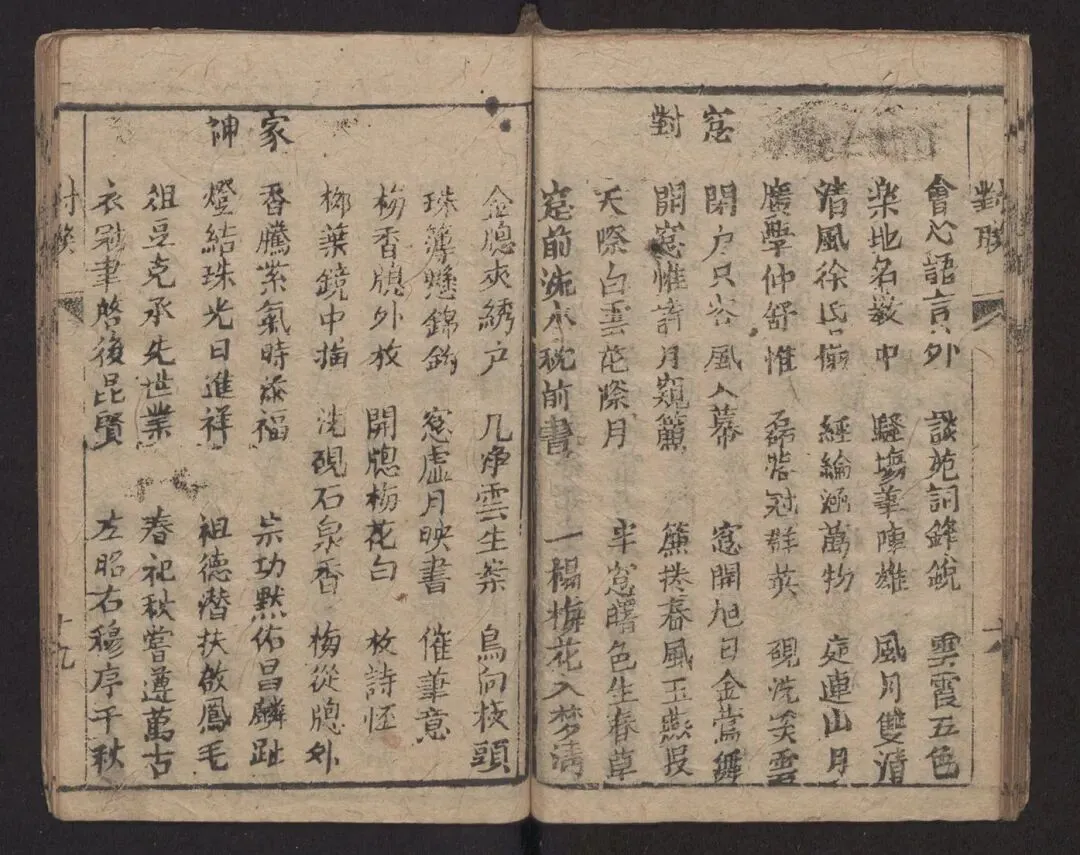 對聯
會心語言外 談苑詞鋒銳 雲霞五色
樂地名教中 騷壇筆陣雄 風月雙清
清風徐氏榻 經綸涵萬物 窓連山月
廣學仲舒惟 磊落冠群英 硯洗溪雲
窓對
閉户只容風入幕 窓開旭日金鶯囀
開窓惟許月窺簾 簾捲春風玉燕投
天際白雲花際月 半窓曙色生春草
窓前流水枕前書 一榻梅花入梦清
金牕夾綉户 几净雲生案 鳥向枝頭
珠簿懸錦鈎 窓虛月映書 催筆意
梅香牕外放 開牕梅花白 放詩怀
柳葉鏡中描 洗硯石泉香 梅從牕外
家神
香騰紫氣時添福 宗功默佑昌麟趾
燈結珠光日進祥 祖德潛扶啟鳳毛
徂豆克承先世業 春祀秋嘗遵萬古
衣冠聿啓後昆賢 左昭右穆序千秋
十九